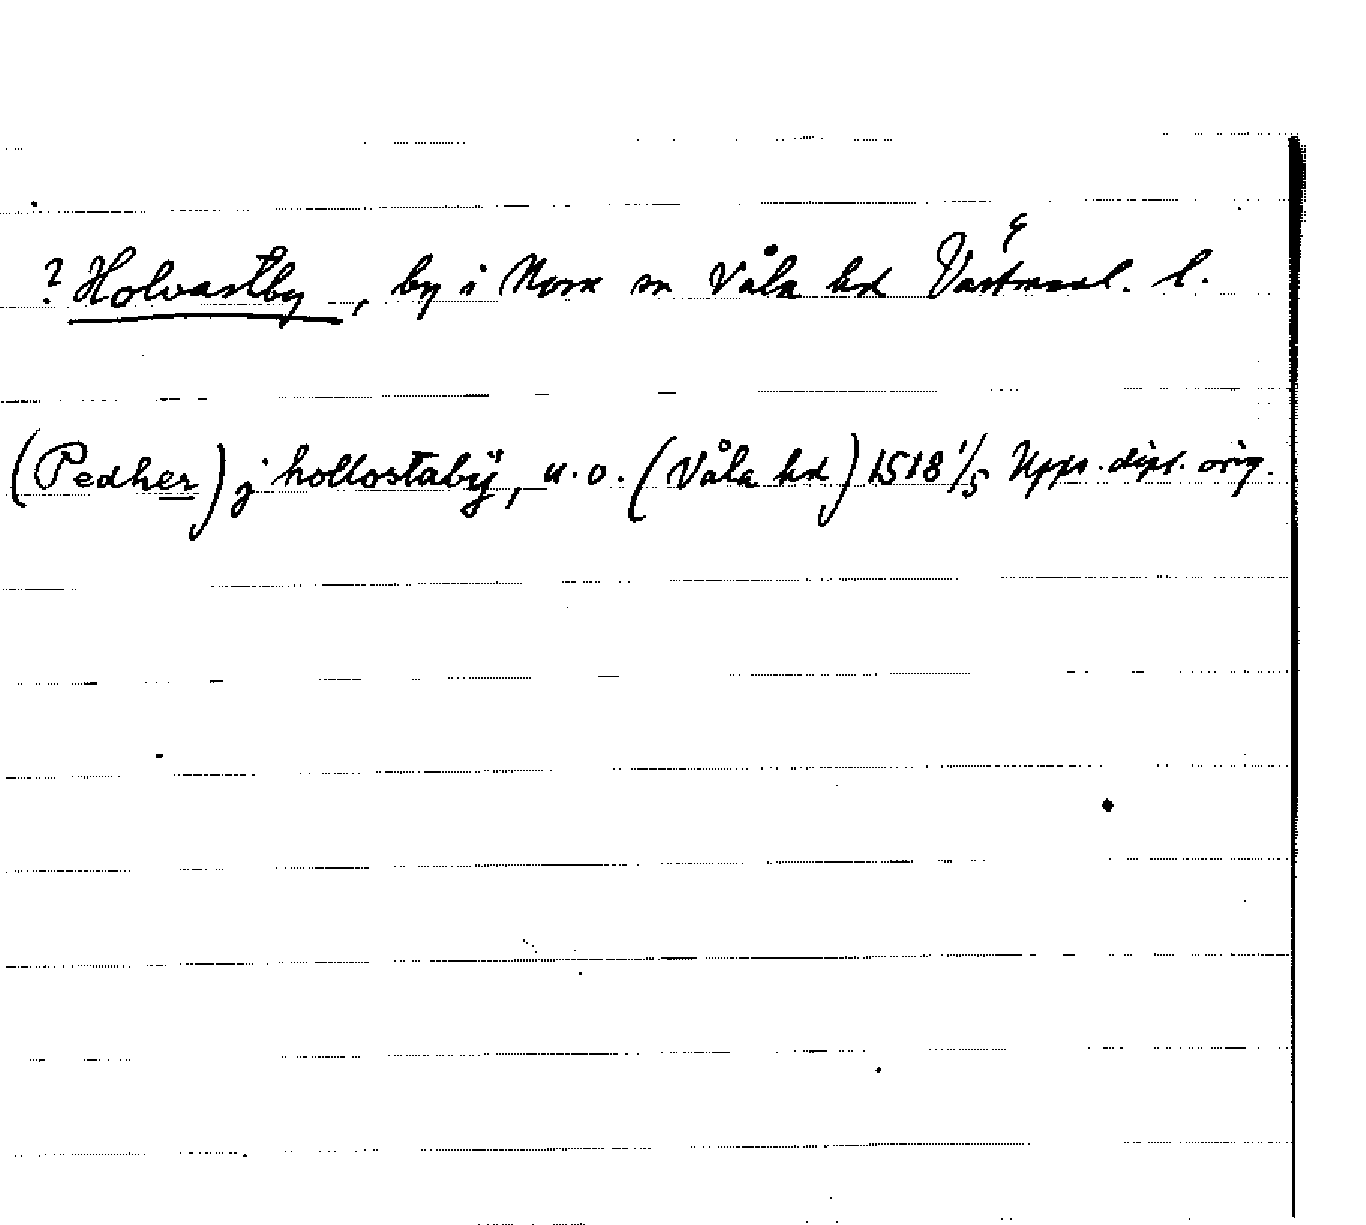 ? Holvastby, by i Nora sn Våla hd Västmanl. l.
(Pedher) j hollostabÿ, u.o. (Våla hd) 1518 1/5 Upps. dipl. orig.